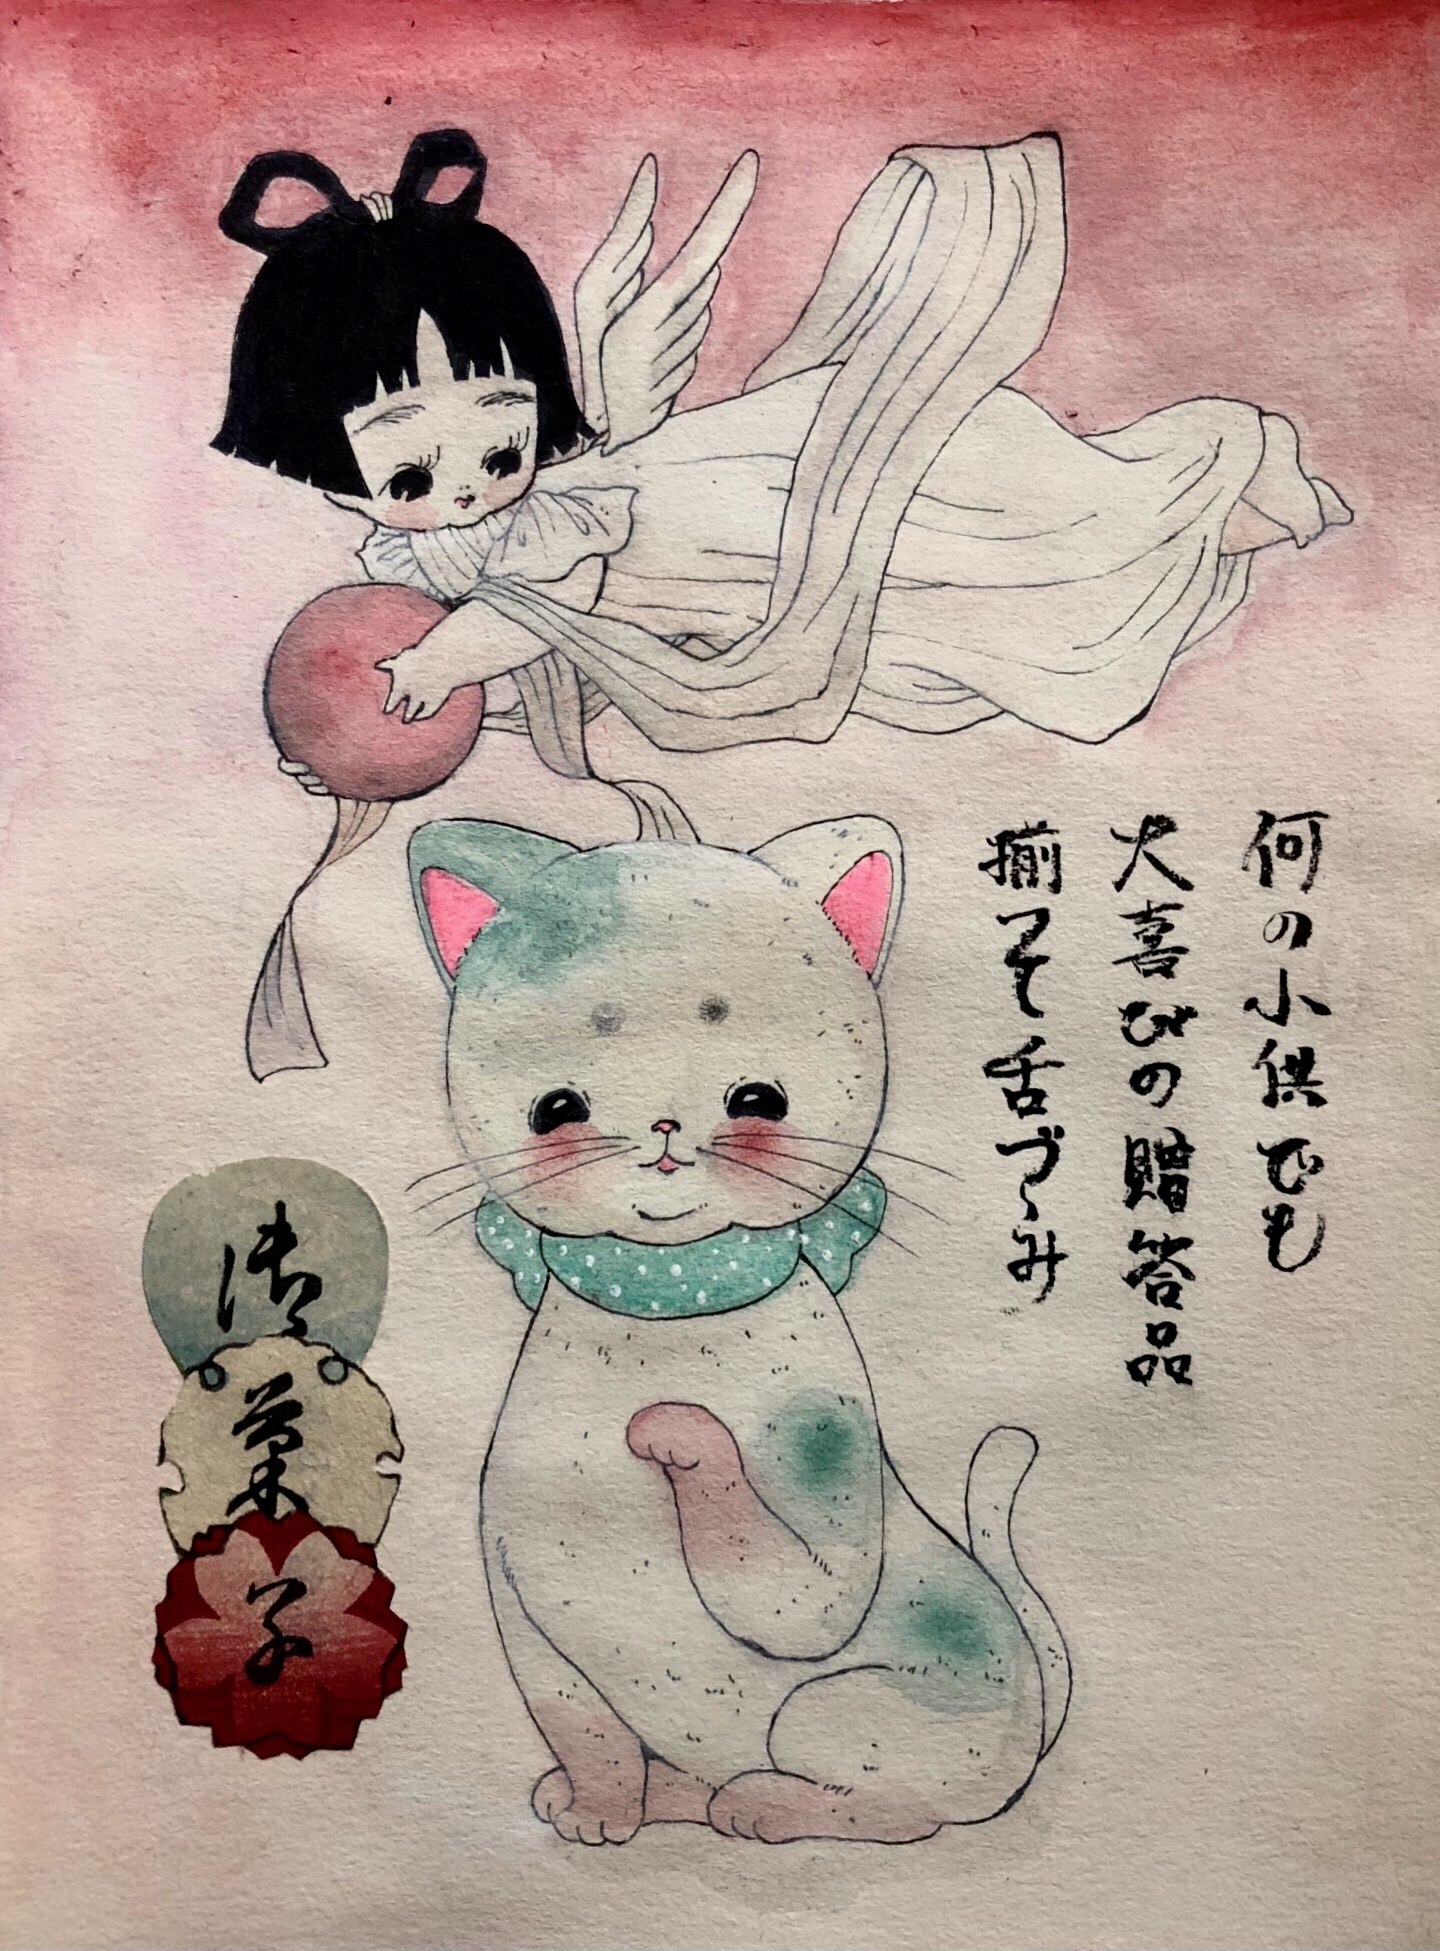 何の小供でも
大喜びの贈答品
揃つて舌づゝみ
御菓子